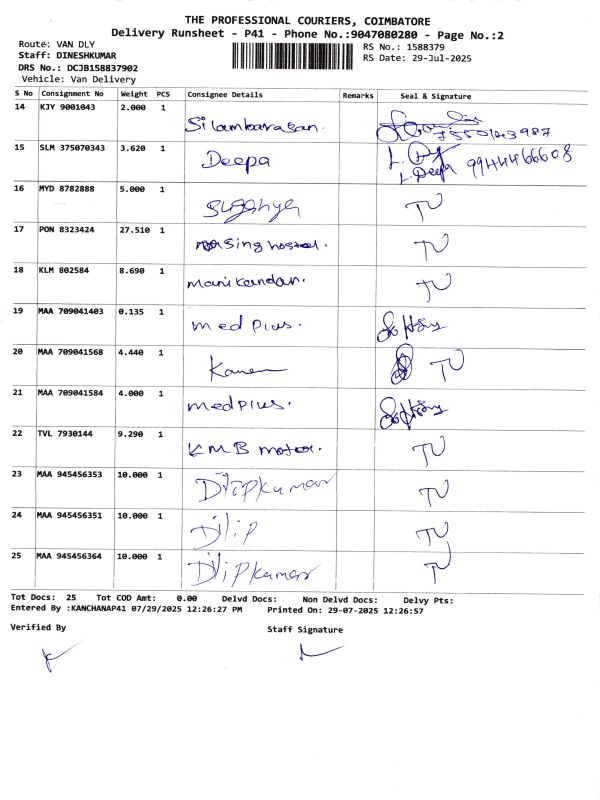 THE PROFESSIONAL COURIERS, COIMBATORE
Delivery Runsheet - P41 - Phone No.:9047080280 - Page No.:2
Route: VAN DLY
RS No.: 1588379
Staff: DINESHKUMAR
RS Date: 29-Jul-2025
DRS No.: DCJB158837902
Vehicle: Van Delivery
S No Consignment No Weight PCS Consignee Details Remarks Seal & Signature
14 KJY 9001043 2.000 1 Silambarasan.
15 SLM 375070343 3.620 1 Deepa L. Deepa 9944466608
16 MYD 8782888 5.000 1 Suganya TU
17 PON 8323424 27.510 1 nursing hostel. TU
18 KLM 802584 8.690 1 manikandan. TU
19 MAA 709041403 0.135 1 med plus.
20 MAA 709041568 4.440 1 TU
21 MAA 709041584 4.000 1 medplus.
22 TVL 7930144 9.290 1 KMB motor. TU
23 MAA 945456353 10.000 1 Dilipkumar TU
24 MAA 945456351 10.000 1 Dilip TU
25 MAA 945456364 10.000 1 Dilipkumar TU
Tot Docs: 25 Tot COD Amt: 0.00 Delvd Docs: Non Delvd Docs: Delvy Pts:
Entered By :KANCHANAP41 07/29/2025 12:26:27 PM Printed On: 29-07-2025 12:26:57
Verified By Staff Signature